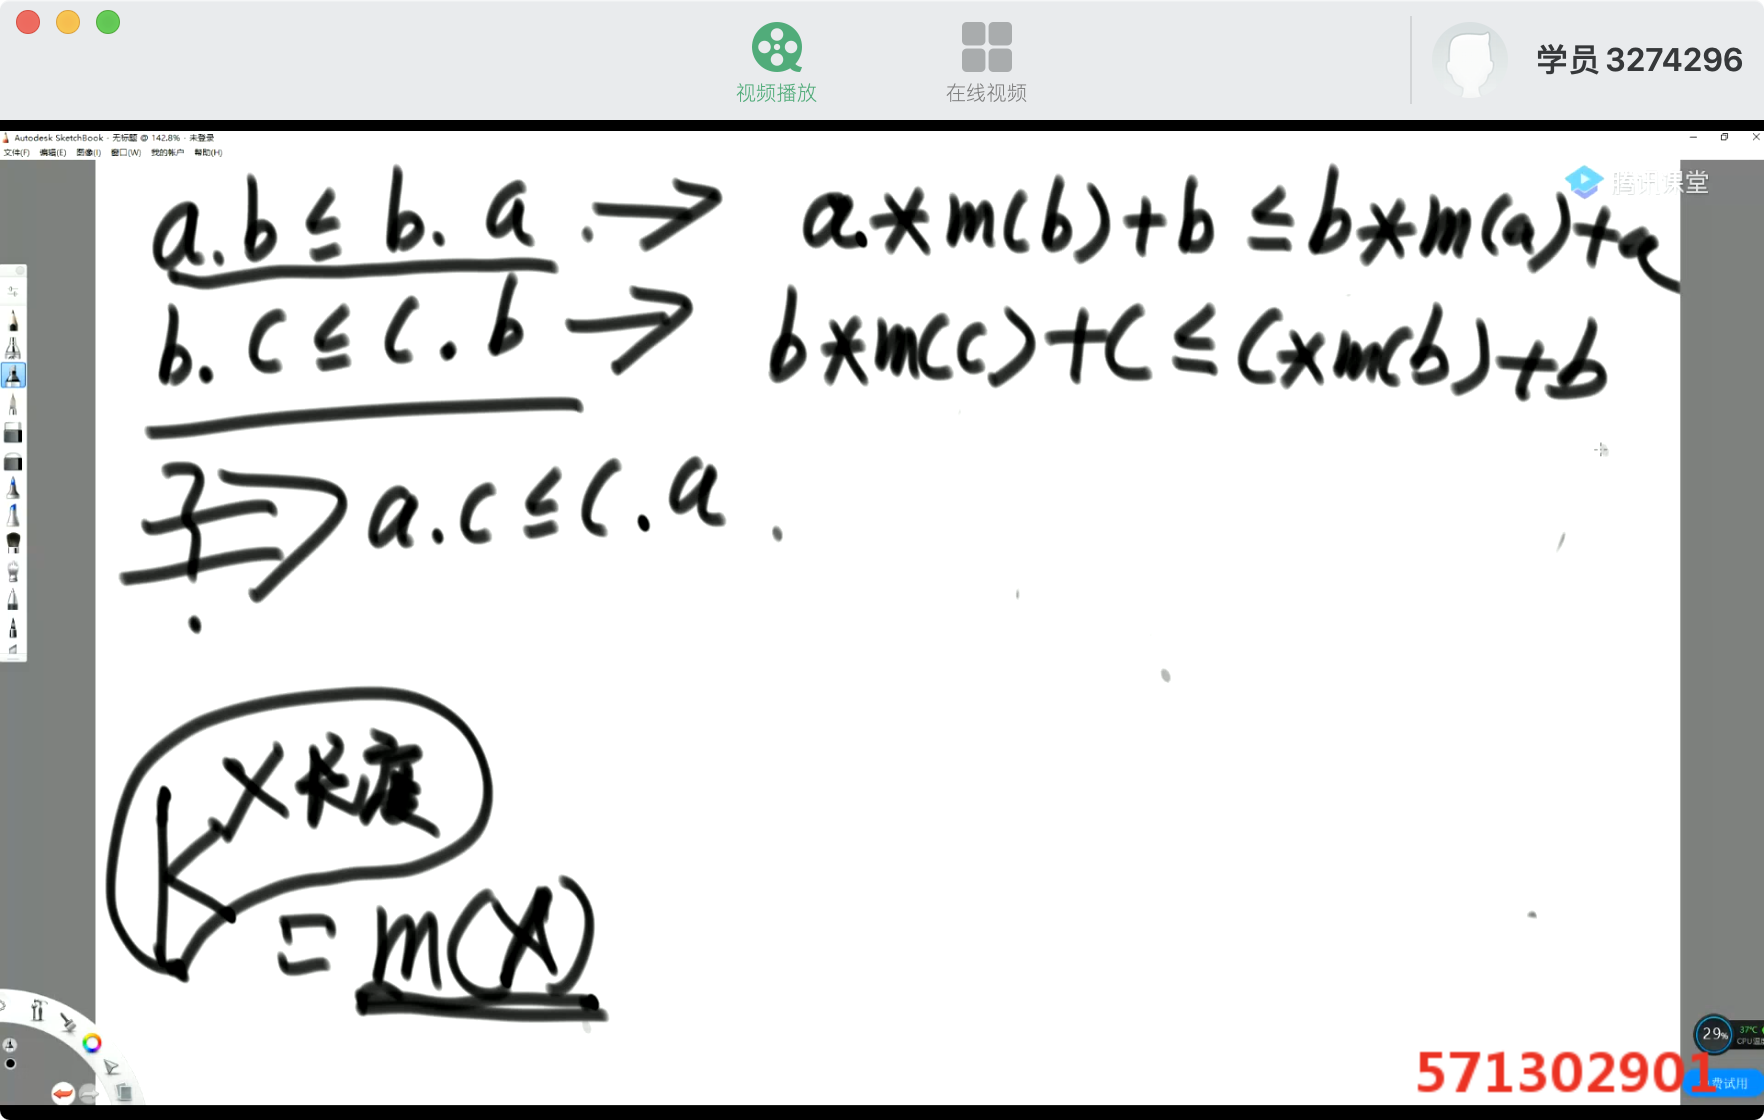 视频播放
在线视频
学员 3274296
Autodesk SketchBook - 无标题 @ 142.8% - 未登录
文件(F) 编辑(E) 图像(I) 窗口(W) 我的帐户 帮助(H)
腾讯课堂
a.b ≤ b.a. → a.*m(b)+b ≤ b*m(a)+a
b.c ≤ c.b → b*m(c)+c ≤ c*m(b)+b
? ⇒ a.c ≤ c.a.
K X长度 = m(X)
29%
37℃
571302901
费试用